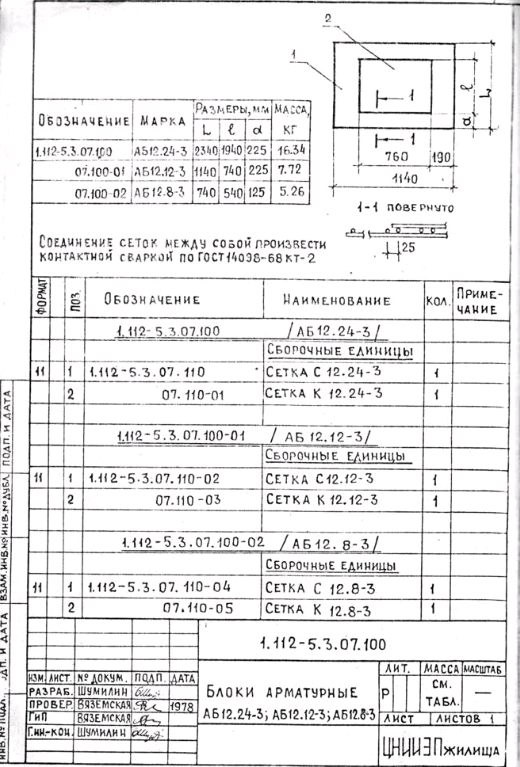 2
1
ОБОЗНАЧЕНИЕ МАРКА РАЗМЕРЫ, ММ МАССА, КГ
L ℓ d
1.112-5.3.07.100 АБ12.24-3 2340 1940 225 16.34
07.100-01 АБ12.12-3 1140 740 225 7.72
07.100-02 АБ12.8-3 740 540 125 5.26
1
1
ℓ
L
d
760 190
1140
1-1 ПОВЕРНУТО
25
СОЕДИНЕНИЕ СЕТОК МЕЖДУ СОБОЙ ПРОИЗВЕСТИ
КОНТАКТНОЙ СВАРКОЙ ПО ГОСТ 14098-68 КТ-2
ФОРМАТ ПОЗ. ОБОЗНАЧЕНИЕ НАИМЕНОВАНИЕ КОЛ. ПРИМЕ-
ЧАНИЕ
1.112-5.3.07.100 /АБ12.24-3/
СБОРОЧНЫЕ ЕДИНИЦЫ
11 1 1.112-5.3.07.110 СЕТКА С 12.24-3 1
2 07.110-01 СЕТКА К 12.24-3 1
1.112-5.3.07.100-01 /АБ 12.12-3/
СБОРОЧНЫЕ ЕДИНИЦЫ
11 1 1.112-5.3.07.110-02 СЕТКА С12.12-3 1
2 07.110-03 СЕТКА К 12.12-3 1
1.112-5.3.07.100-02 /АБ12.8-3/
СБОРОЧНЫЕ ЕДИНИЦЫ
11 1 1.112-5.3.07.110-04 СЕТКА С 12.8-3 1
2 07.110-05 СЕТКА К 12.8-3 1
1.112-5.3.07.100
ИЗМ. ЛИСТ. № ДОКУМ. ПОДП. ДАТА
РАЗРАБ. ШУМИЛИН
ПРОВЕР. ВЯЗЕМСКАЯ 1978
ГИП ВЯЗЕМСКАЯ
ГИН.-КОН. ШУМИЛИН
БЛОКИ АРМАТУРНЫЕ
АБ12.24-3; АБ12.12-3; АБ12.8-3
ЛИТ. МАССА МАСШТАБ
Р СМ. ТАБЛ. —
ЛИСТ ЛИСТОВ 1
ЦНИИЭП ЖИЛИЩА
ПОДП. И ДАТА
ИНВ.№ ДУБЛ.
ВЗАМ.ИНВ.№